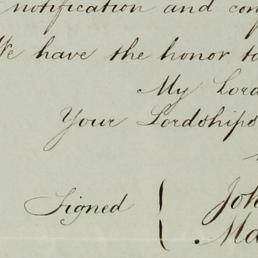 notification and
We have the honor to
My Lord
Your Lordships
Signed
Joh
Ma